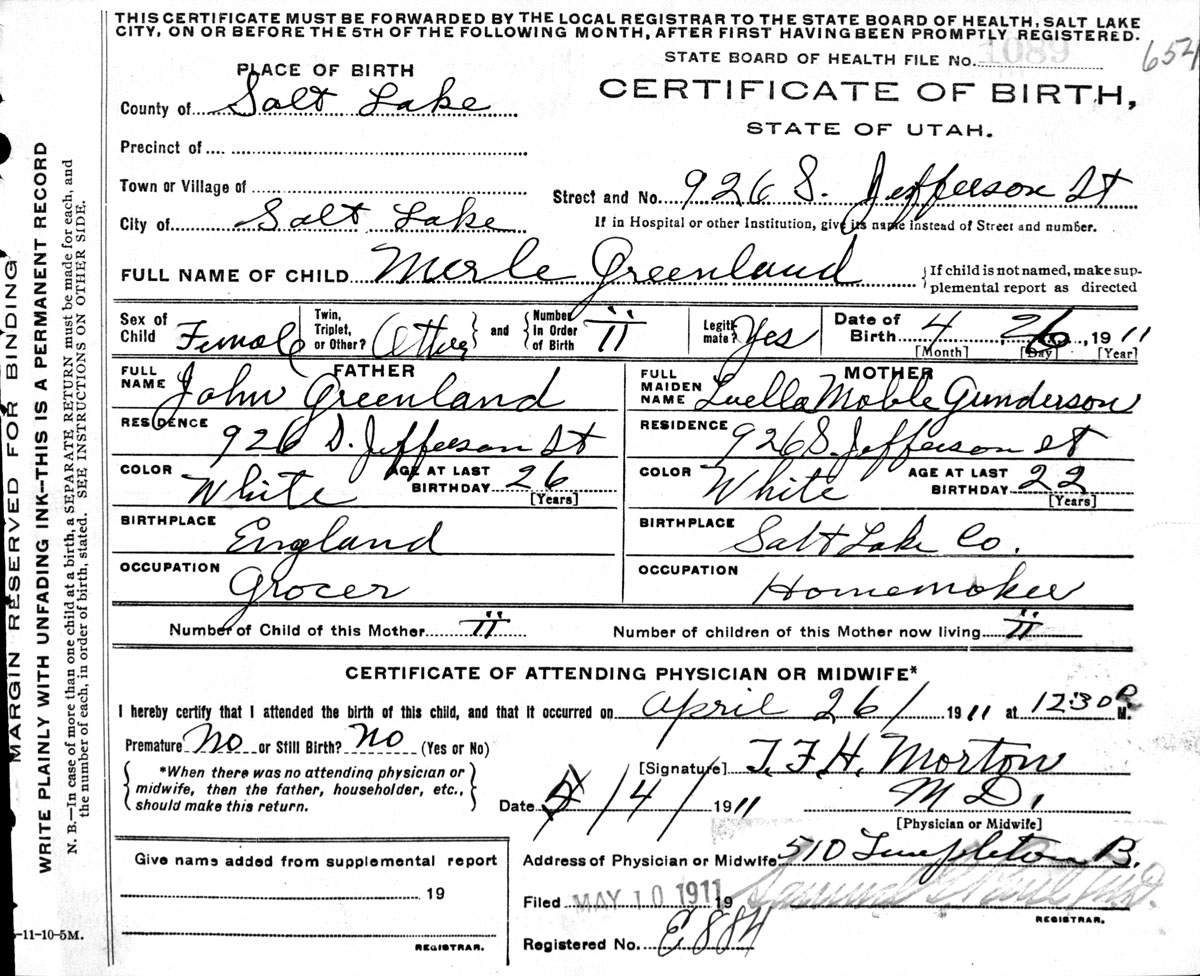 THIS CERTIFICATE MUST BE FORWARDED BY THE LOCAL REGISTRAR TO THE STATE BOARD OF HEALTH, SALT LAKE
CITY, ON OR BEFORE THE 5TH OF THE FOLLOWING MONTH, AFTER FIRST HAVING BEEN PROMPTLY REGISTERED.
STATE BOARD OF HEALTH FILE No. 1089
654
PLACE OF BIRTH
CERTIFICATE OF BIRTH,
County of Salt Lake
STATE OF UTAH.
Precinct of
Town or Village of
Street and No. 926 S. Jefferson St
City of Salt Lake
If in Hospital or other Institution, give its name instead of Street and number.
FULL NAME OF CHILD Merle Greenland
If child is not named, make sup-
plemental report as directed
Sex of Child Female Twin, Triplet, or Other? Other and Number In Order of Birth II Legiti- mate? Yes Date of Birth 4 26, 1911
[Month] [Day] [Year]
FATHER MOTHER
FULL NAME John Greenland FULL MAIDEN NAME Luella Moble Gunderson
RESIDENCE 926 S. Jefferson St RESIDENCE 926 S. Jefferson St
COLOR White AGE AT LAST BIRTHDAY 26 [Years] COLOR White AGE AT LAST BIRTHDAY 22 [Years]
BIRTHPLACE England BIRTHPLACE Salt Lake Co.
OCCUPATION Grocer OCCUPATION Homemaker
Number of Child of this Mother II Number of children of this Mother now living II
CERTIFICATE OF ATTENDING PHYSICIAN OR MIDWIFE*
I hereby certify that I attended the birth of this child, and that it occurred on April 26/ 1911 at 1230 P M.
Premature No or Still Birth? No (Yes or No)
*When there was no attending physician or
midwife, then the father, householder, etc.,
should make this return.
[Signature] T. F. H. Morton
Date 5/4/ 1911 M D.
[Physician or Midwife]
Give name added from supplemental report
Address of Physician or Midwife 510 Templeton B.
19
Filed MAY 10 1911 19
REGISTRAR.
Registered No. E884
REGISTRAR.
-11-10-5M.
MARGIN RESERVED FOR BINDING
WRITE PLAINLY WITH UNFADING INK—THIS IS A PERMANENT RECORD
N. B.—In case of more than one child at a birth, a SEPARATE RETURN must be made for each, and
the number of each, in order of birth, stated. SEE INSTRUCTIONS ON OTHER SIDE.